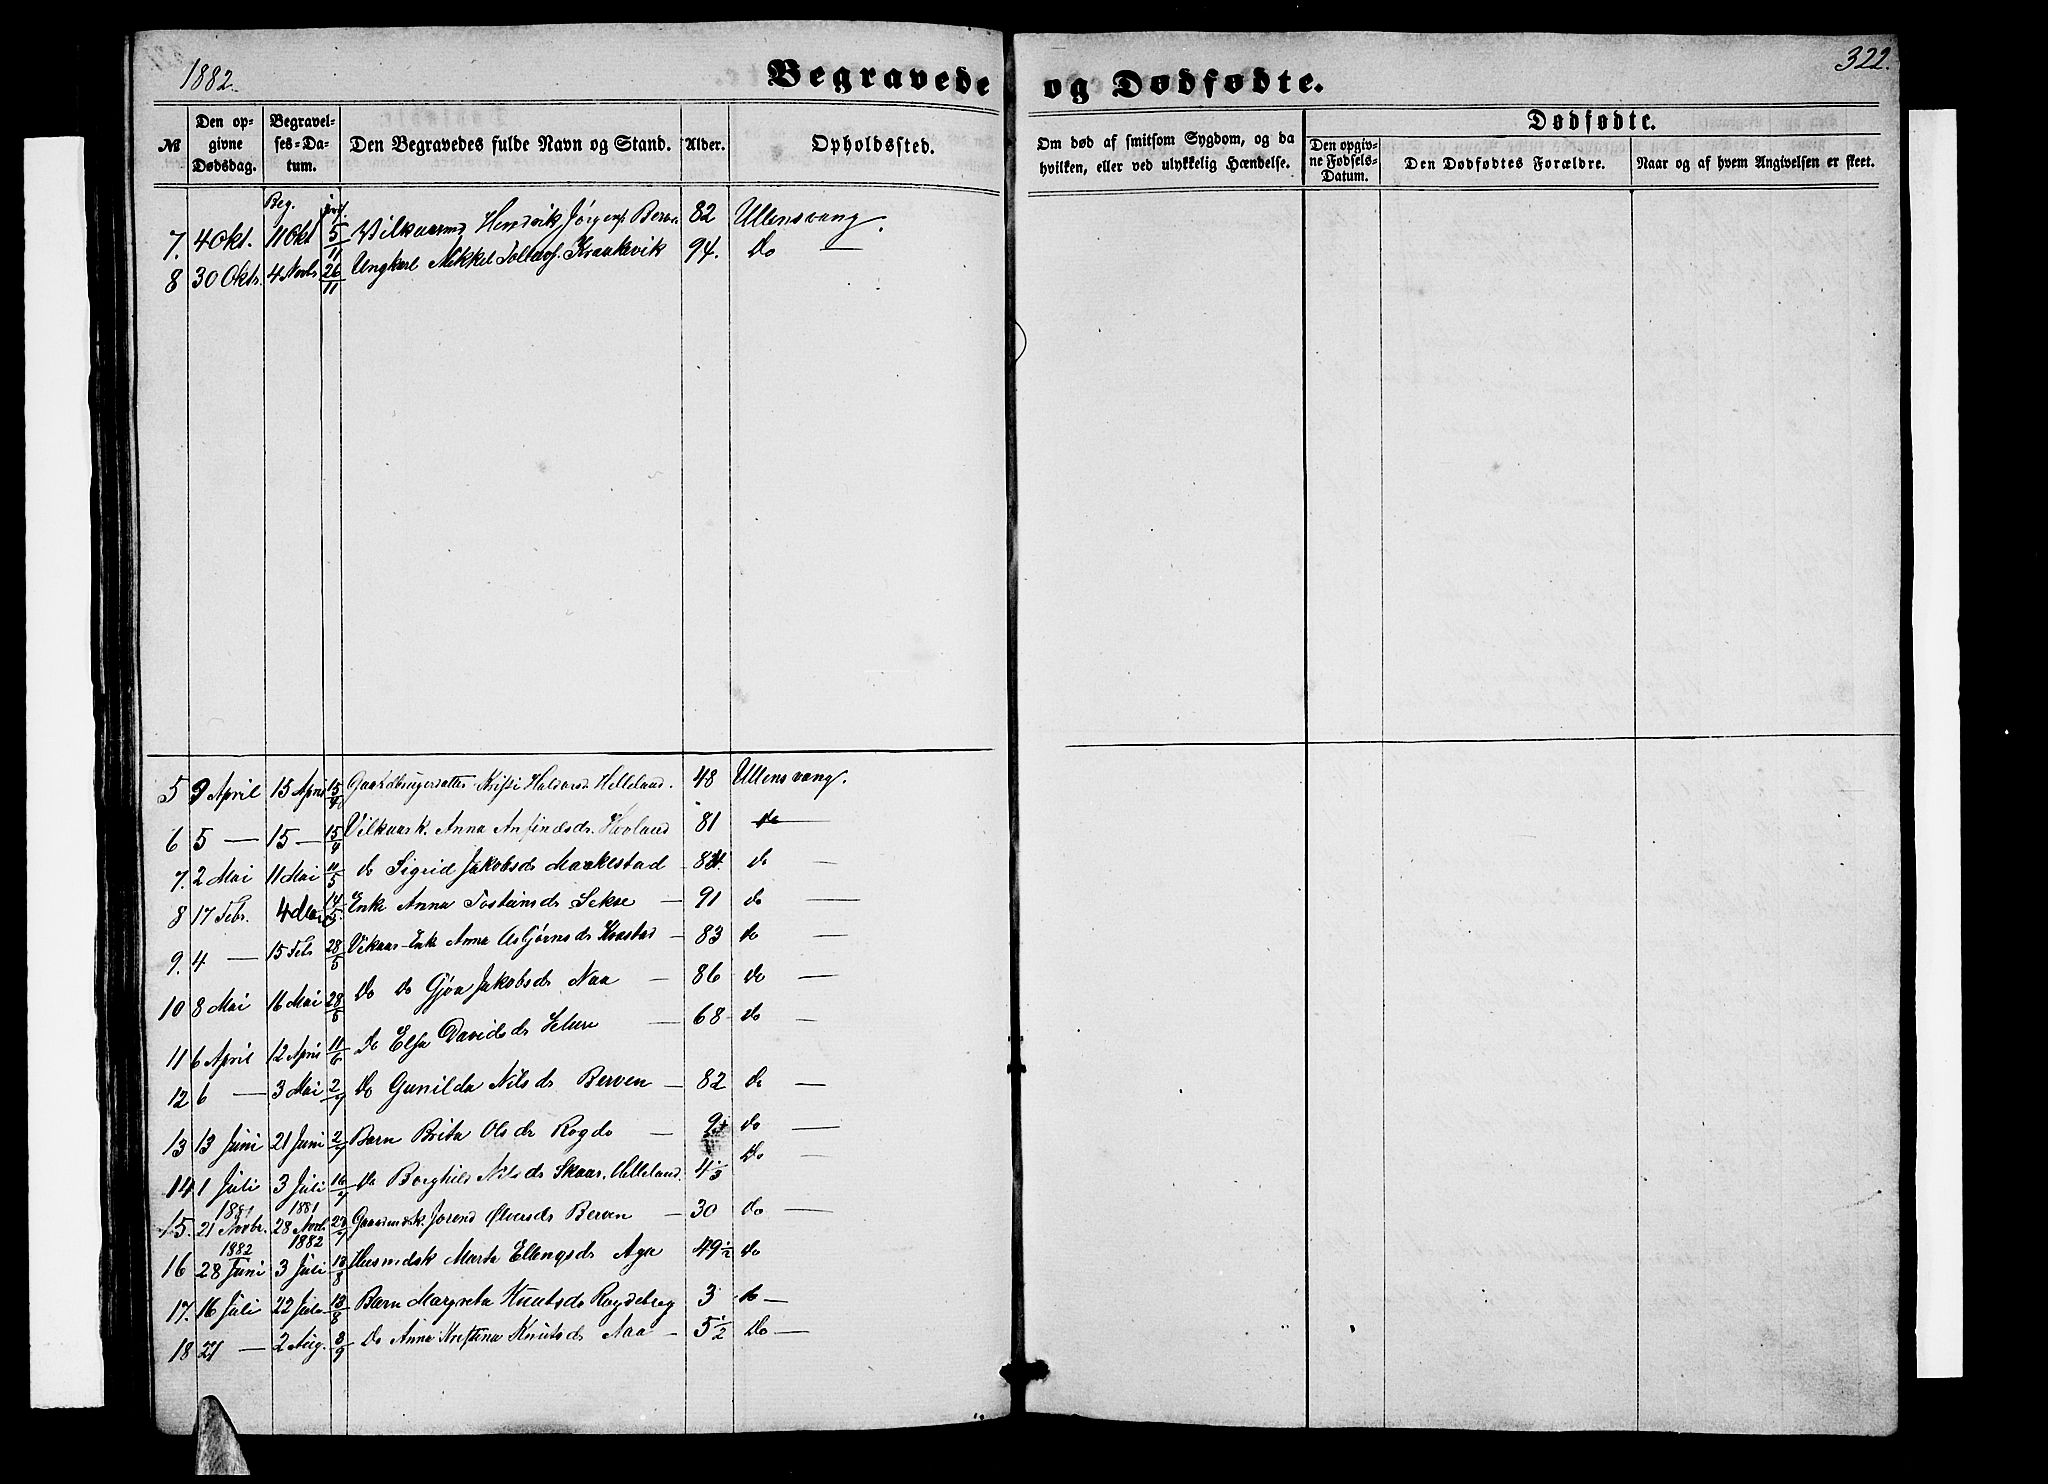 1882.
Begravede og Dødfødte.
322.
№
Den opgivne Dødsdag.
Begravelses-Datum.
Den Begravedes fulde Navn og Stand.
Alder.
Opholdssted.
Om død af smitsom Sygdom, og da hvilken, eller ved ulykkelig Hændelse.
Dødfødte.
Den opgivne Fødsels-Datum.
Den Dødfødtes Forældre.
Naar og af hvem Angivelsen er skeet.
Beg.
7. 4 Okt. 11 Okt 5/11 Vilkaarsmd Hendrik Jørgens. Berven 82 Ullensvang.
8 30 Oktr. 4 Novbr 26/11 Ungkarl Mikkel Tollevs. Kraakevik 94. Do —
5 9 April 15 April 15/4 Gaardbrugerdatter Kristi Haldorsd Helleland. 48 Ullensvang.
6 5 — 15 — 15/4 Vilkaarsk. Anna Anfindsdr. Hovland 81 do —
7. 2 Mai 11 Mai 11/5 do Sigrid Jakobsdr Maakestad do —
8 17 Febr. 4 Mai 14/5 Enke Anna Tosteinsdr Sekse — 91 do —
9. 4 — 15 Feb 28/5 Vikaars Enke Anna Asbjørnsdr — 83 do —
10 8 Mai 16 Mai 28/5 Do do Gjøa Jakobsdr Naa — 86 do —
11 6 April 12 April 11/6 do Elsa Davidsdr — 68 do —
12 6 — 3 Mai 2/7 do Gunilda Nilsdr Berven — 82 do —
13 13 Juni 21 Juni 2/7 Barn Brita Olsdr Rogde — do —
14 1 Juli 3 Juli 16/7 do Borghild Nilsdr Skaar, Helleland. 4 1/3 Do —
1881 1881
15. 21 Novbr. 28 Novb. 23/7 Gaardmdsk Jorend Olversdr Berven — 30 do —
1882 1882
16 28 Juni 3 Juli 13/8 Husmdsk Marta Ellengsdr Aga 49 1/2 do
17. 16 Juli 22 Juli 13/8 Barn Margreta Knutsdr 3 do —
18 27 — 2 Aug. 3/9 do Anna Kristina Knutsdr Aaa — 5 1/2 Do —